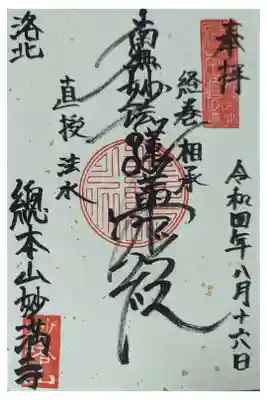 奉拝
令和四年八月十六日
経巻相承
南無妙法蓮華経
直授法水
洛北
總本山妙満寺